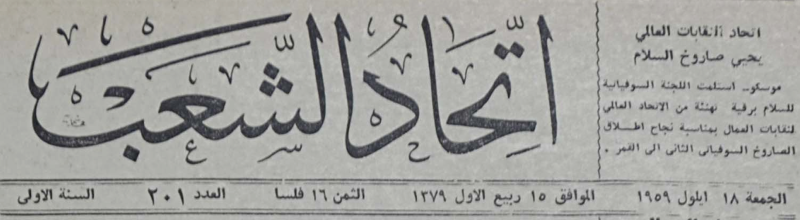 اتحاد النقابات العالمي
يحيي صاروخ السلام
موسكو ـ استلمت اللجنة السوفياتية
للسلام برقية تهنئة من الاتحاد العالمي
لنقابات العمال بمناسبة نجاح اطلاق
الصاروخ السوفياتي الثاني الى القمر .
اتِّحَادُ الشَّعب
الجمعة ١٨ ايلول ١٩٥٩ الموافق ١٥ ربيع الاول ١٣٧٩ الثمن ١٦ فلسا العدد ٢٠١ السنة الاولى